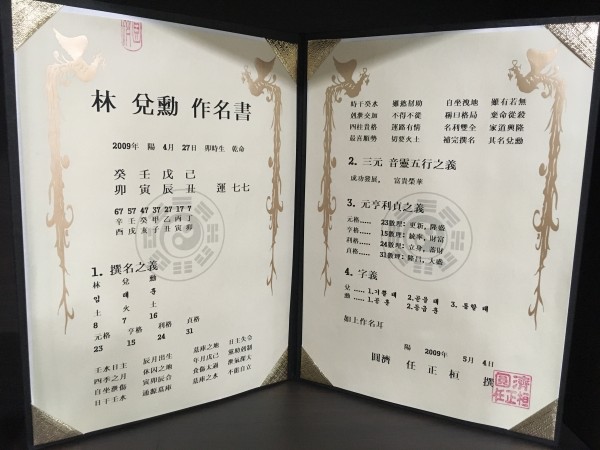 林 兌勳 作名書
2009年 陽 4月 27日 卯時生 乾命
癸 壬 戊 己
卯 寅 辰 丑 運 七七
67 57 47 37 27 17 7
辛 壬 癸 甲 乙 丙 丁
酉 戌 亥 子 丑 寅 卯
1. 撰名之義
林 兌 勳
임 태 훈
土 火 土
8 7 16
元格 亨格 利格 貞格
23 15 24 31
壬水日主 辰月出生 墓庫之地 日主失令
四季之月 休囚之地 年月戊己 靈動剋制
自坐洩傷 寅卯辰合 食傷太過 洩氣深大
日干壬水 通源墓庫 墓庫之水 不能自立
時干癸水 雖能幫助 自坐洩地 雖有若無
剋洩交加 不得不從 稱曰格局 棄命從殺
四柱貴格 運路有情 名利雙全 家道興隆
最喜順勢 切要火土 補完撰名 其名兌勳
2. 三元 音靈五行之義
成功發展, 富貴榮華
3. 元亨利貞之義
元格..... 23數理: 更新, 隆盛
亨格..... 15數理: 統率, 財富
利格..... 24數理: 立身, 蓄財
貞格..... 31數理: 隆昌, 大盛
4. 字義
兌 ..... 1.기쁠 태 2.곧을 태 3.통할 태
勳 ..... 1.공 훈 2.등급 훈
如上作名耳
陽 2009年 5月 4日
圓濟 任正桓 撰
圓濟
任正桓